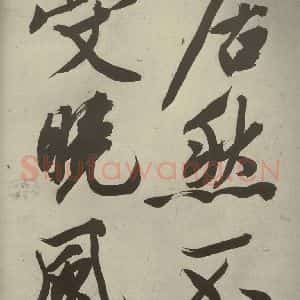 居然不
受曉風
Shufawang.CN